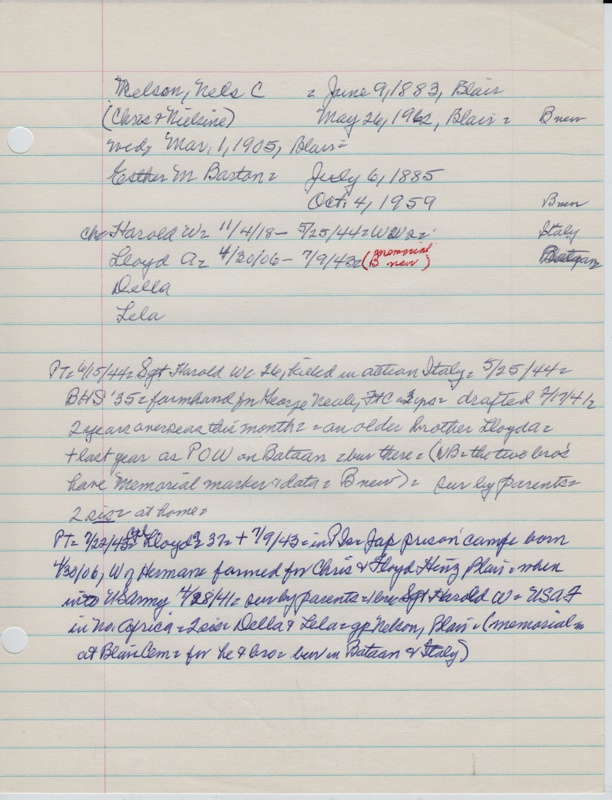 Nelson, Nels C = June 9, 1883, Blair
(Chris & Nielsine) May 26, 1962, Blair = B new
wed, Mar, 1, 1905, Blair =
Esther M Barton = July 6, 1885
Oct. 4, 1959 B new
ch = Harold W = 11/4/18 - 5/25/44 = WW2 = Italy
Lloyd A = 4/30/06 - 7/9/43 = (memorial B new) Bataan
Della
Lela
PT = 6/15/44 = Sgt Harold W = 26, killed in action Italy = 5/25/44 =
BHS '35 = farmhand George Neale, = drafted
2 years overseas this month = an older brother Lloyd a =
+ last year as POW on Bataan = bur there = (NB = the two bro's
have Memorial marker & data = B new) = sur by parents =
2 sis = at home =
PT = 7/22/43 = Lloyd = 37 = + 7/9/43 = in PI = Jap prison camp born
4/30/06, W of Herman farmed for Chris & Floyd Heinz Blair = when
into US army 4/28/41 = sur by parents = 1 bro Sgt Harold W = USAF
in No. Africa = 2 sis Della & Lela = gp Nelson, Blair = (memorial =
at Blair Cem = for he & bro = bur in Bataan & Italy)